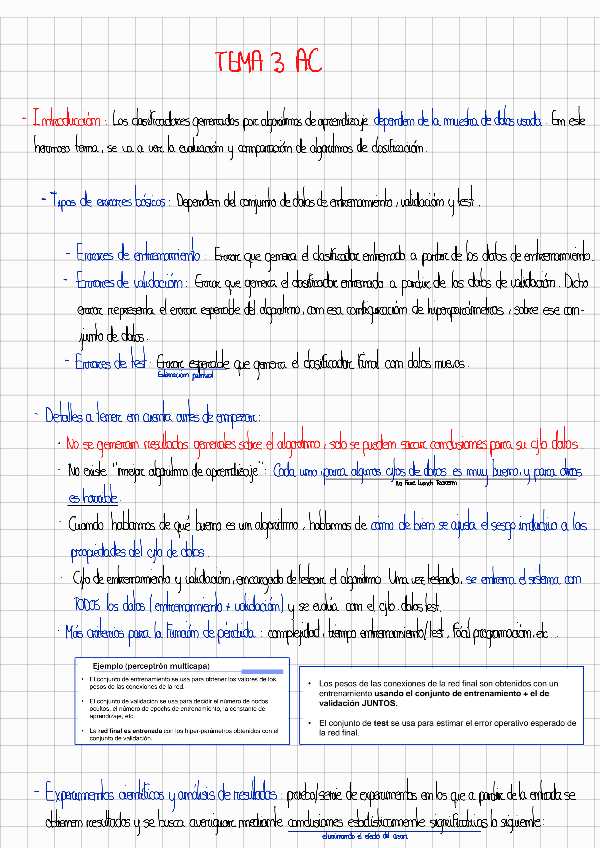 TEMA 3 AC
- Introducción: Los clasificadores generados por algoritmos de aprendizaje dependen de la muestra de datos usada. En este
hermoso tema, se va a ver la evaluación y comparación de algoritmos de clasificación.
- Tipos de errores básicos: Dependen del conjunto de datos de entrenamiento, validación y test.
- Errores de entrenamiento: Error que genera el clasificador entrenado a partir de los datos de entrenamiento.
- Errores de validación: Error que genera el clasificador entrenado a partir de los datos de validación. Dicho
error representa el error esperable del algoritmo, con esa configuración de hiperparámetros, sobre ese con-
junto de datos.
- Errores de test: Error esperable que genera el clasificador final con datos nuevos.
Estimación puntual
- Detalles a tener en cuenta antes de empezar:
· No se generan resultados generales sobre el algoritmo, solo se pueden sacar conclusiones para su cjto datos.
· No existe "mejor algoritmo de aprendizaje": Cada uno, para algunos cjtos de datos es muy bueno, y para otros
No Free Lunch Teorem
es horrible.
· Cuando hablamos de qué bueno es un algoritmo, hablamos de cómo de bien se ajusta el sesgo inductivo a las
propiedades del cjto de datos.
· Cjto de entrenamiento y validación, encargado de testear el algoritmo. Una vez testeado, se entrena el sistema con
TODOS los datos (entrenamiento + validación) y se evalúa con el cjto. datos test.
· Más criterios para la función de pérdida: complejidad, tiempo entrenamiento/test, fácil programación, etc
Ejemplo (perceptrón multicapa)
• El conjunto de entrenamiento se usa para obtener los valores de los
pesos de las conexiones de la red.
• El conjunto de validación se usa para decidir el número de nodos
ocultos, el número de epochs de entrenamiento, la constante de
aprendizaje, etc.
• La red final es entrenada con los hiper-parámetros obtenidos con el
conjunto de validación.
• Los pesos de las conexiones de la red final son obtenidos con un
entrenamiento usando el conjunto de entrenamiento + el de
validación JUNTOS.
• El conjunto de test se usa para estimar el error operativo esperado de
la red final.
- Experimentos científicos y análisis de resultados: prueba/serie de experimentos en los que a partir de la entrada se
obtienen resultados y se busca averiguar mediante conclusiones estadísticamente significativas lo siguiente:
eliminando el efecto del azar